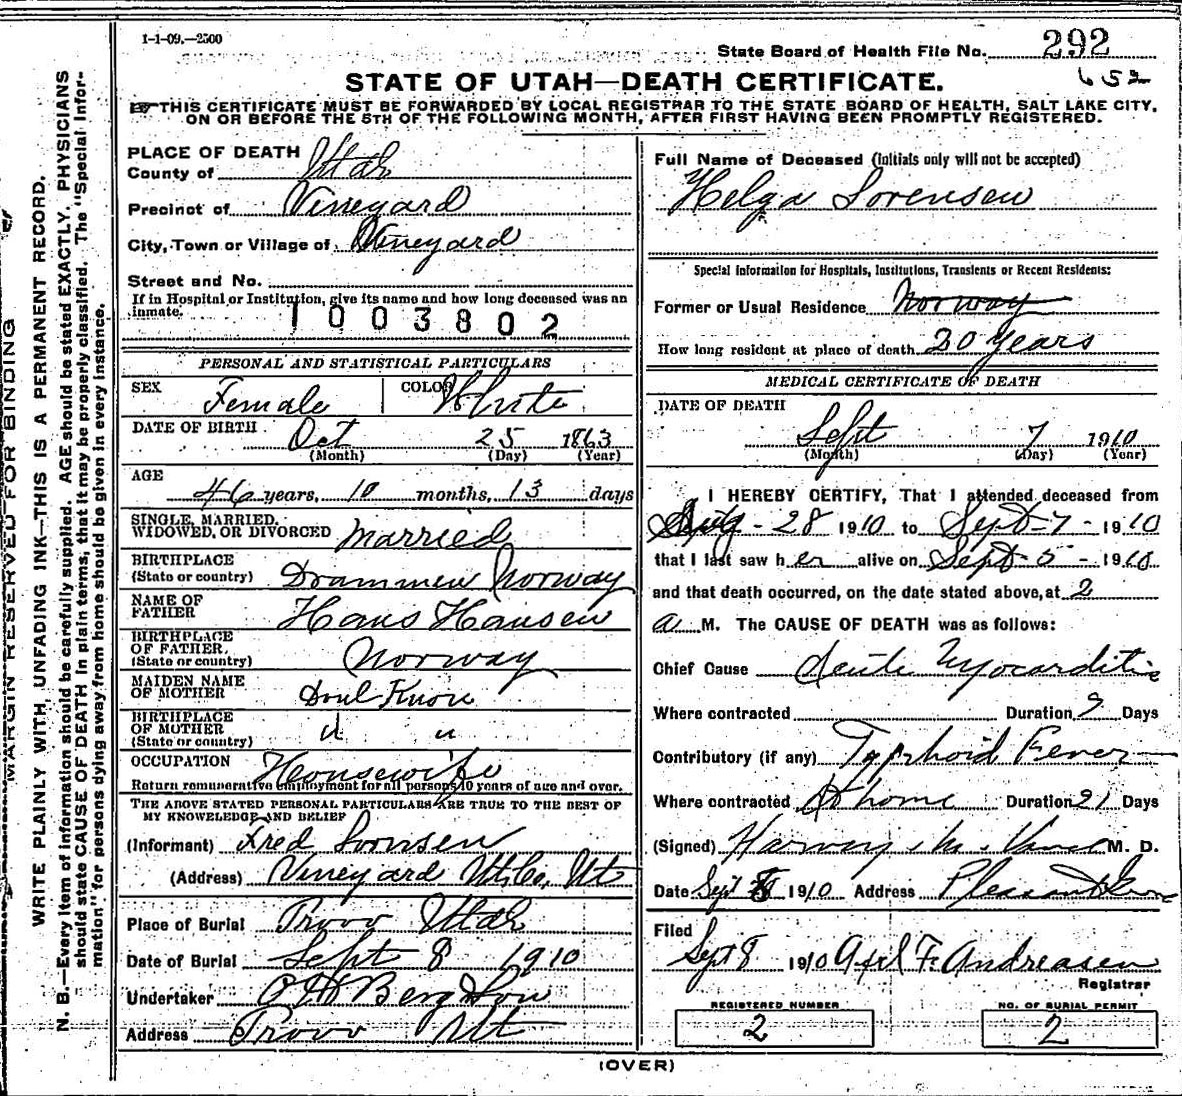 1-1-09.—2500
State Board of Health File No. 292
652
STATE OF UTAH—DEATH CERTIFICATE.
THIS CERTIFICATE MUST BE FORWARDED BY LOCAL REGISTRAR TO THE STATE BOARD OF HEALTH, SALT LAKE CITY,
ON OR BEFORE THE 5TH OF THE FOLLOWING MONTH, AFTER FIRST HAVING BEEN PROMPTLY REGISTERED.
MARGIN RESERVED FOR BINDING
WRITE PLAINLY WITH UNFADING INK—THIS IS A PERMANENT RECORD.
N. B.—Every item of information should be carefully supplied. AGE should be stated EXACTLY. PHYSICIANS
should state CAUSE OF DEATH in plain terms, that it may be properly classified. The "Special Infor-
mation" for persons dying away from home should be given in every instance.
PLACE OF DEATH
County of Utah
Precinct of Vineyard
City, Town or Village of Vineyard
Street and No.
If in Hospital or Institution, give its name and how long deceased was an
inmate.
1003802
PERSONAL AND STATISTICAL PARTICULARS
SEX Female COLOR White
DATE OF BIRTH Oct 25 1863
(Month) (Day) (Year)
AGE
46 years, 10 months, 13 days
SINGLE, MARRIED,
WIDOWED, OR DIVORCED Married
BIRTHPLACE
(State or country) Drammen Norway
NAME OF
FATHER Hans Hansen
BIRTHPLACE
OF FATHER,
(State or country) Norway
MAIDEN NAME
OF MOTHER Dont Know
BIRTHPLACE
OF MOTHER
(State or country) " "
OCCUPATION Housewife
Return remunerative employment for all persons 10 years of age and over.
THE ABOVE STATED PERSONAL PARTICULARS ARE TRUE TO THE BEST OF
MY KNOWLEDGE AND BELIEF
(Informant) Fred Sornsen
(Address) Vineyard Ut. Co, Ut
Place of Burial Provo Utah
Date of Burial Sept 8 1910
Undertaker O H Berg & Son
Address Provo Ut
Full Name of Deceased (Initials only will not be accepted)
Helga Sorensen
Special Information for Hospitals, Institutions, Transients or Recent Residents:
Former or Usual Residence Norway
How long resident at place of death 30 Years
MEDICAL CERTIFICATE OF DEATH
DATE OF DEATH
Sept 7 1910
(Month) (Day) (Year)
I HEREBY CERTIFY, That I attended deceased from
Aug - 28 1910 to Sept - 7 - 1910
that I last saw her alive on Sept - 5 - 1910
and that death occurred, on the date stated above, at 2
a M. The CAUSE OF DEATH was as follows:
Chief Cause Acute Myocarditis
Where contracted Duration 9 Days
Contributory (if any) Typhoid Fever
Where contracted At home Duration 21 Days
(Signed) Harvey M. M. D.
Date Sept 8 1910 Address Pleasant Grove
Filed
Sept 8 1910 Axel F. Andreasen
Registrar
REGISTERED NUMBER
2
NO. OF BURIAL PERMIT
2
(OVER)